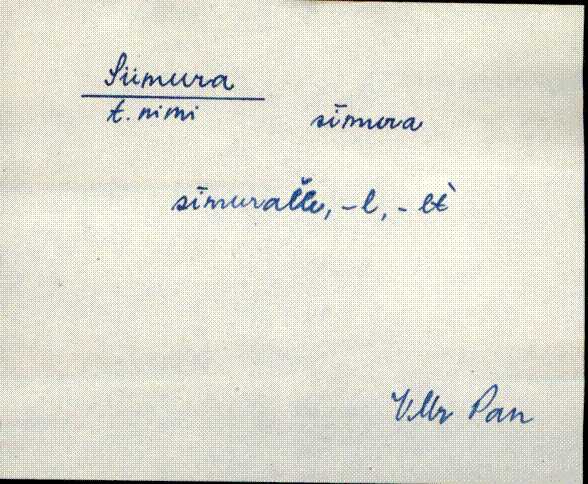 Siimura
t. nimi
sīmura
sīmuralle, -l, -lt
V.Mr Pan